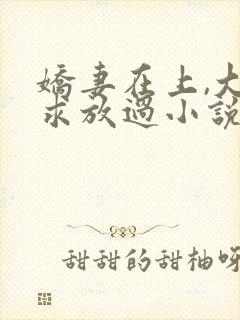 嬌妻在上,大
求放過小說
甜甜的甜柚呀